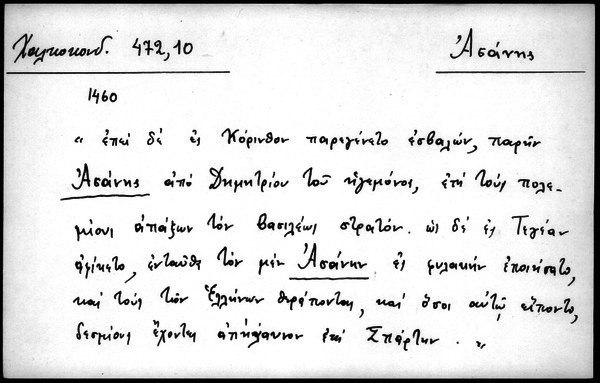 Χαλκοκονδ. 472,10 Ἀσάνης
1460
« ἐπεὶ δὲ ἐς Κόρινθον παρεγένετο ἐσβαλών, παρῆν
Ἀσάνης ἀπὸ Δημητρίου τοῦ ἡγεμόνος, ἐπὶ τοὺς πολε-
μίους ἀπάξων τὸν βασιλέως στρατόν. ὡς δὲ ἐς Τεγέαν
ἀφίκετο, ἐνταῦθα τὸν μὲν Ἀσάνην ἐς φυλακὴν ἐποιήσατο,
καὶ τοὺς τῶν Ἑλλήνων θεράποντας, καὶ ὅσοι αὐτῷ εἵποντο,
δεσμίους ἔχοντες ἀπήλαυνον ἐπὶ Σπάρτην. »